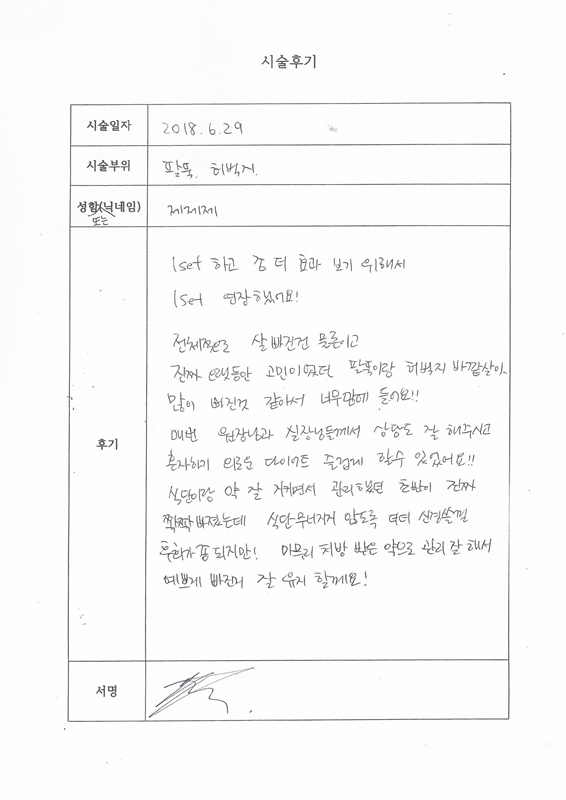 시술후기
시술일자 2018.6.29
시술부위 팔뚝, 허벅지.
성함(닉네임) 제제제
또는
후기
1set 하고 좀 더 효과 보기 위해서
1set 연장했어요!
전체적으로 살 빠진건 물론이고
진짜 오랫동안 고민이었던 팔뚝이랑 허벅지 바깥살이
많이 빠진것 같아서 너무맘에 들어요!!
매번 원장님과 실장님들께서 상담도 잘 해주시고
혼자하기 외로운 다이어트 즐겁게 할수 있었어요!!
식단이랑 약 잘 지키면서 관리했던 초반이 진짜
쫙쫙빠졌는데 식단무너지지 않도록 더더 신경쓸껄
후회가 좀 되지만! 마무리 처방 받은 약으로 관리 잘 해서
예쁘게 빠진거 잘 유지 할께요!
서명